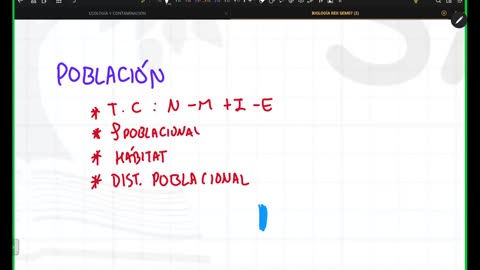 ECOLOGÍA Y CONTAMINACIÓN
BIOLOGÍA RED SEMI7 (2)
POBLACIÓN
* T. C : N - M + I - E
* ρ POBLACIONAL
* HÁBITAT
* DIST. POBLACIONAL